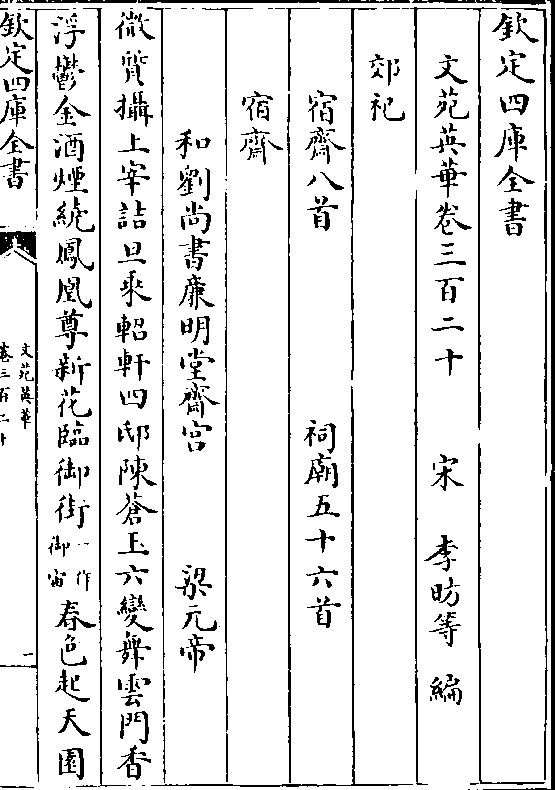 欽定四庫全書
文苑英華卷三百二十 宋 李昉等 編
郊祀
宿齋八首 祠廟五十六首
宿齋
和劉尚書廉明堂齋宮 梁元帝
微質攝上宰詰旦乘軺軒四邸陳蒼玉六變舞雲門香
浮鬱金酒煙繞鳳凰尊新花臨御街一作御宙春色起天園
欽定四庫全書
文苑英華
卷三百二十
一